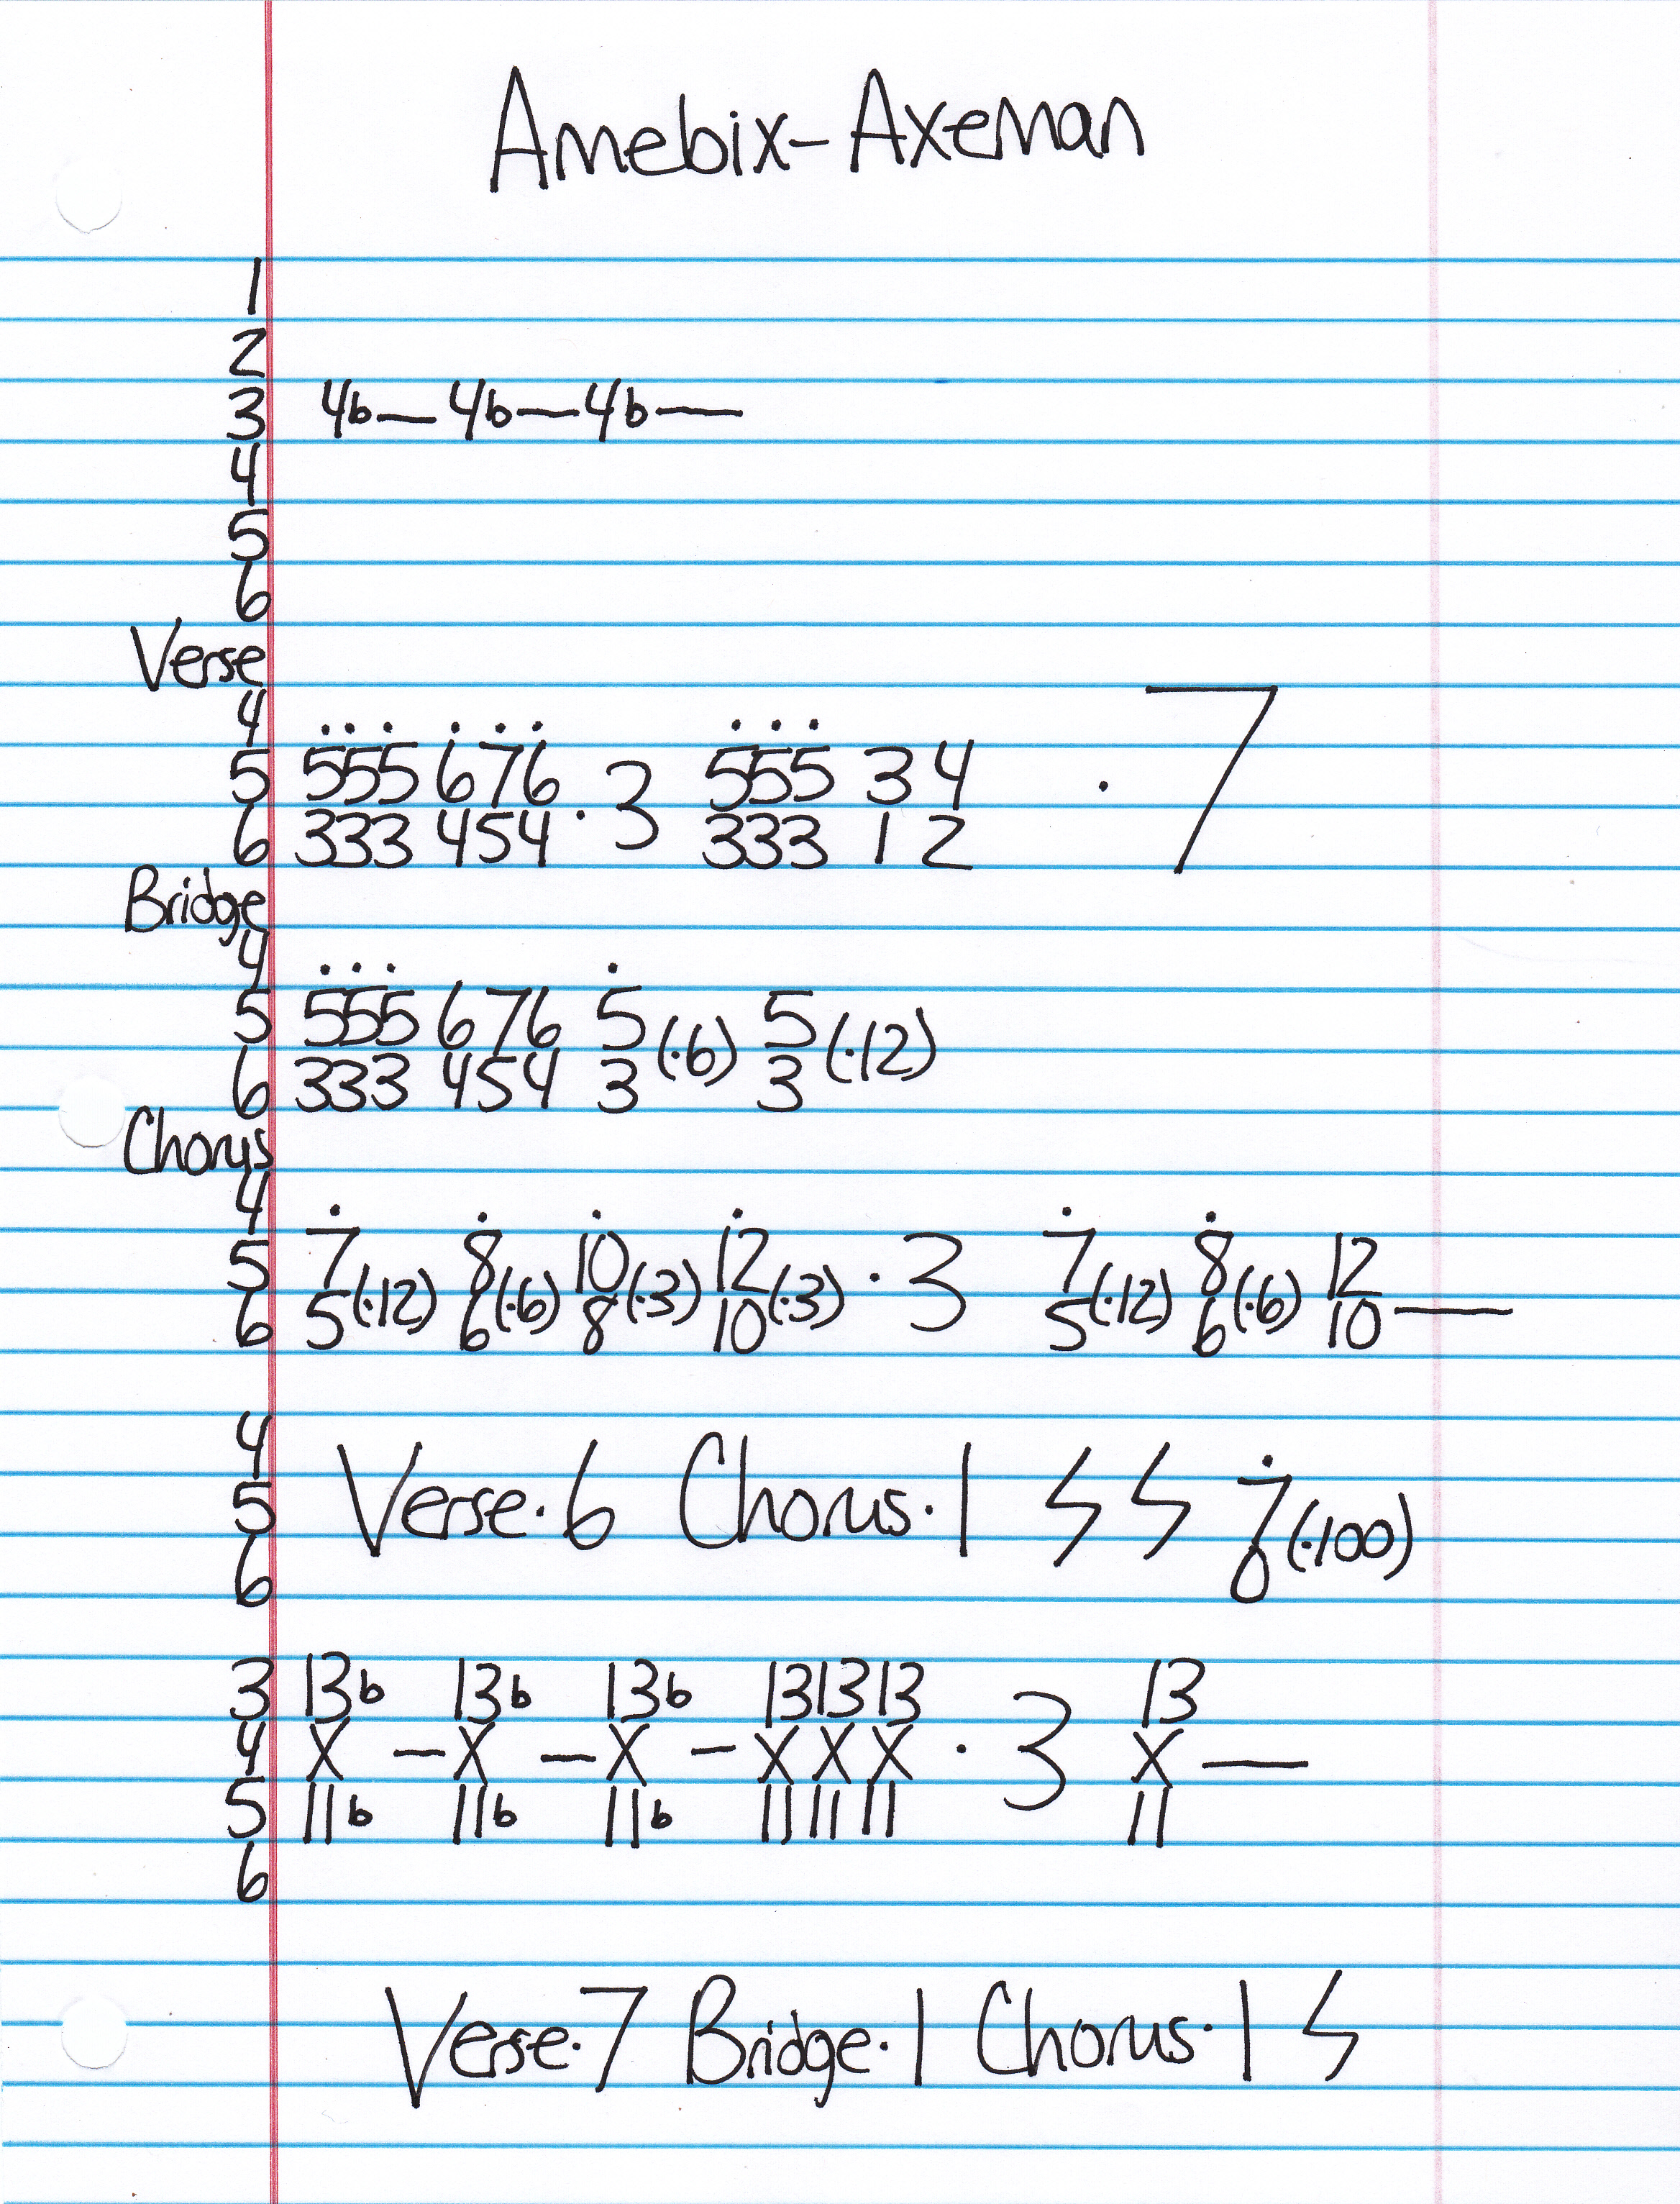 Amebix - Axeman
1
2
3 4b— 4b— 4b—
4
5
6
Verse
4
5 555 676 · 3 555 3 4 · 7
6 333 454 333 1 2
Bridge
4
5 555 676 5 (·6) 5 (·12)
6 333 454 3 3
Chorus
4
5 7 (·12) 8 (·6) 10 (·3) 12 (·3) · 3 7 (·12) 8 (·6) 12
6 5 6 8 10 5 6 10 —
4
5 Verse·6 Chorus·1 ϟ ϟ 7 (·100)
6 0
3 13b 13b 13b 131313
4 X — X — X — X X X · 3 X —
5 11b 11b 11b 11 11 11 11
6
Verse·7 Bridge·1 Chorus·1 ϟ